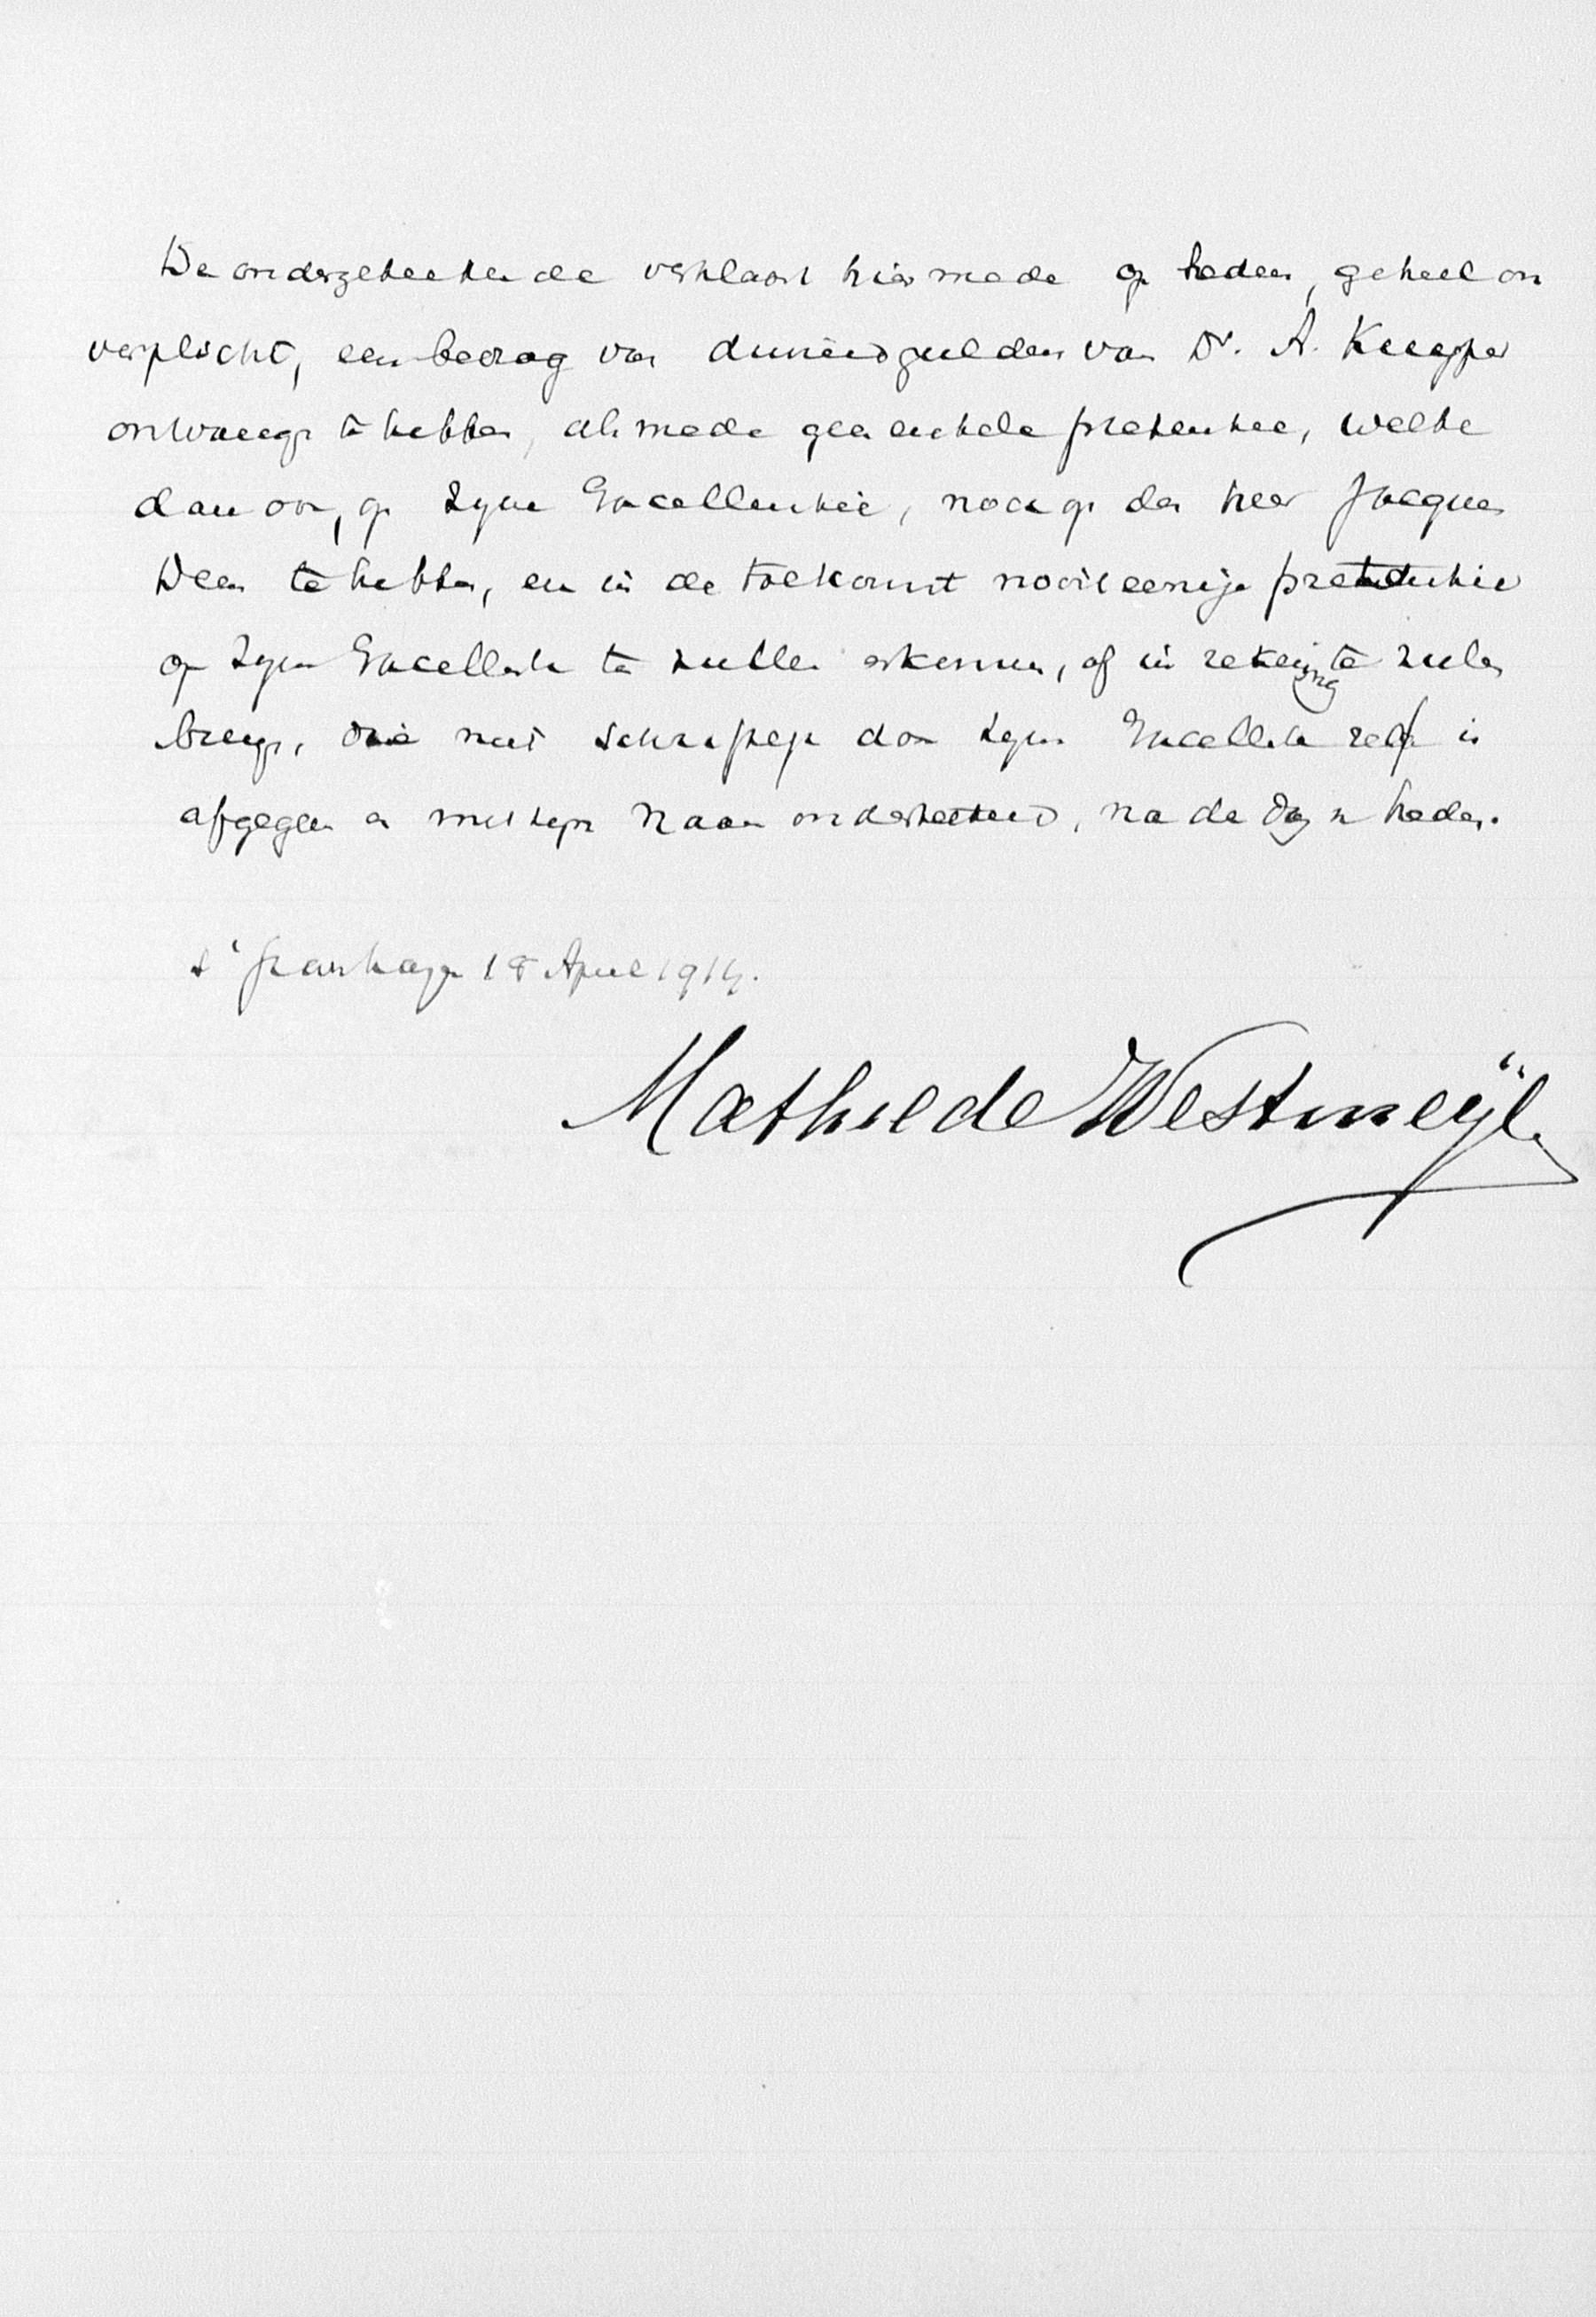 De ondergeteekende verklaart hiermede op heden, geheel on
verplicht, een bedrag van duizend gulden van Dr. A. Kuyper
ontvangen te hebben, alsmede geen enkele pretentie, welke
dan ook, op Zijne Excellentie, noch op den heer Jacques
Deen te hebben, en in de toekomst nooit eenige pretentie
op Zijne Excellentie te zullen erkennen, of in rekening te zullen
brengen, die niet schriftelijk door Zijne Excellentie zelf is
afgegeven en met zijn naam onderteekend, na de dag van heden.
s' Gravenhage 18 April 1914.
Mathilde Westmeijer